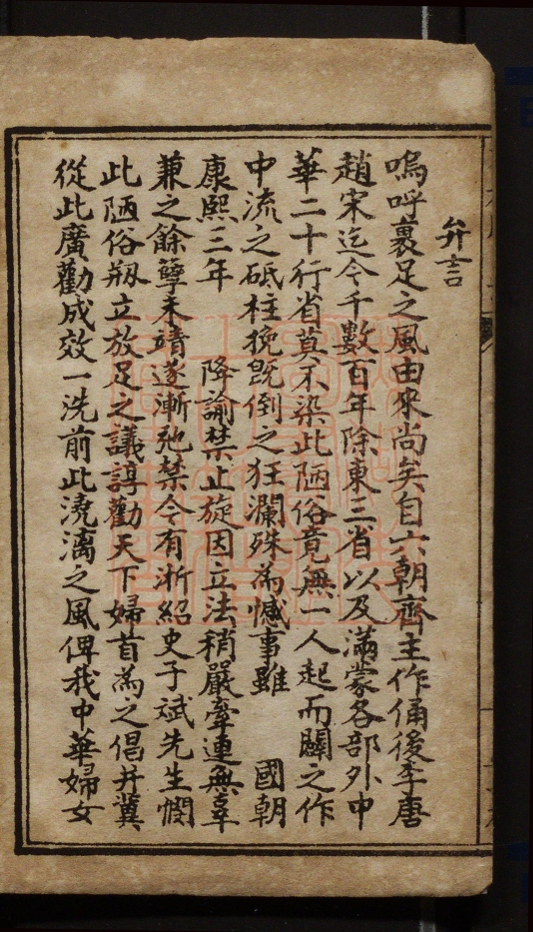 弁言
嗚呼裹足之風由來尚矣自六朝齊主作俑後李唐
趙宋迄今千數百年除東三省以及滿蒙各部外中
華二十行省莫不染此陋俗竟無一人起而闢之作
中流之砥柱挽既倒之狂瀾殊為憾事雖 國朝
康熙三年 降諭禁止旋因立法稍嚴牽連無辜
兼之餘孽未靖遂漸弛禁今有浙紹史子斌先生憫
此陋俗刱立放足之議諄勸天下婦首為之倡并冀
從此廣勸成效一洗前此澆漓之風俾我中華婦女